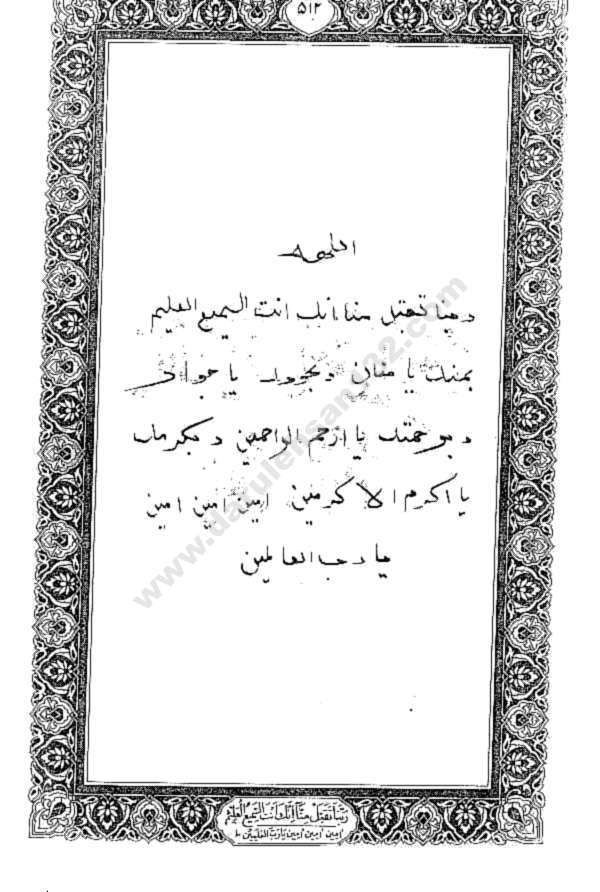 ٥١٢
اللهم
ربنا تقبل منا انك انت السميع العليم
بمنك يا منان وبجودك يا جواد
وبرحمتك يا ارحم الراحمين وبكرمك
يا اكرم الاكرمين امين امين امين
يا رب العالمين
www.darulehsan22.com
رَبَّنَا تَقَبَّلْ مِنَّا اِنَّكَ اَنْتَ السَّمِيْعُ الْعَلِيْم
امين امين امين يا رب العلمين